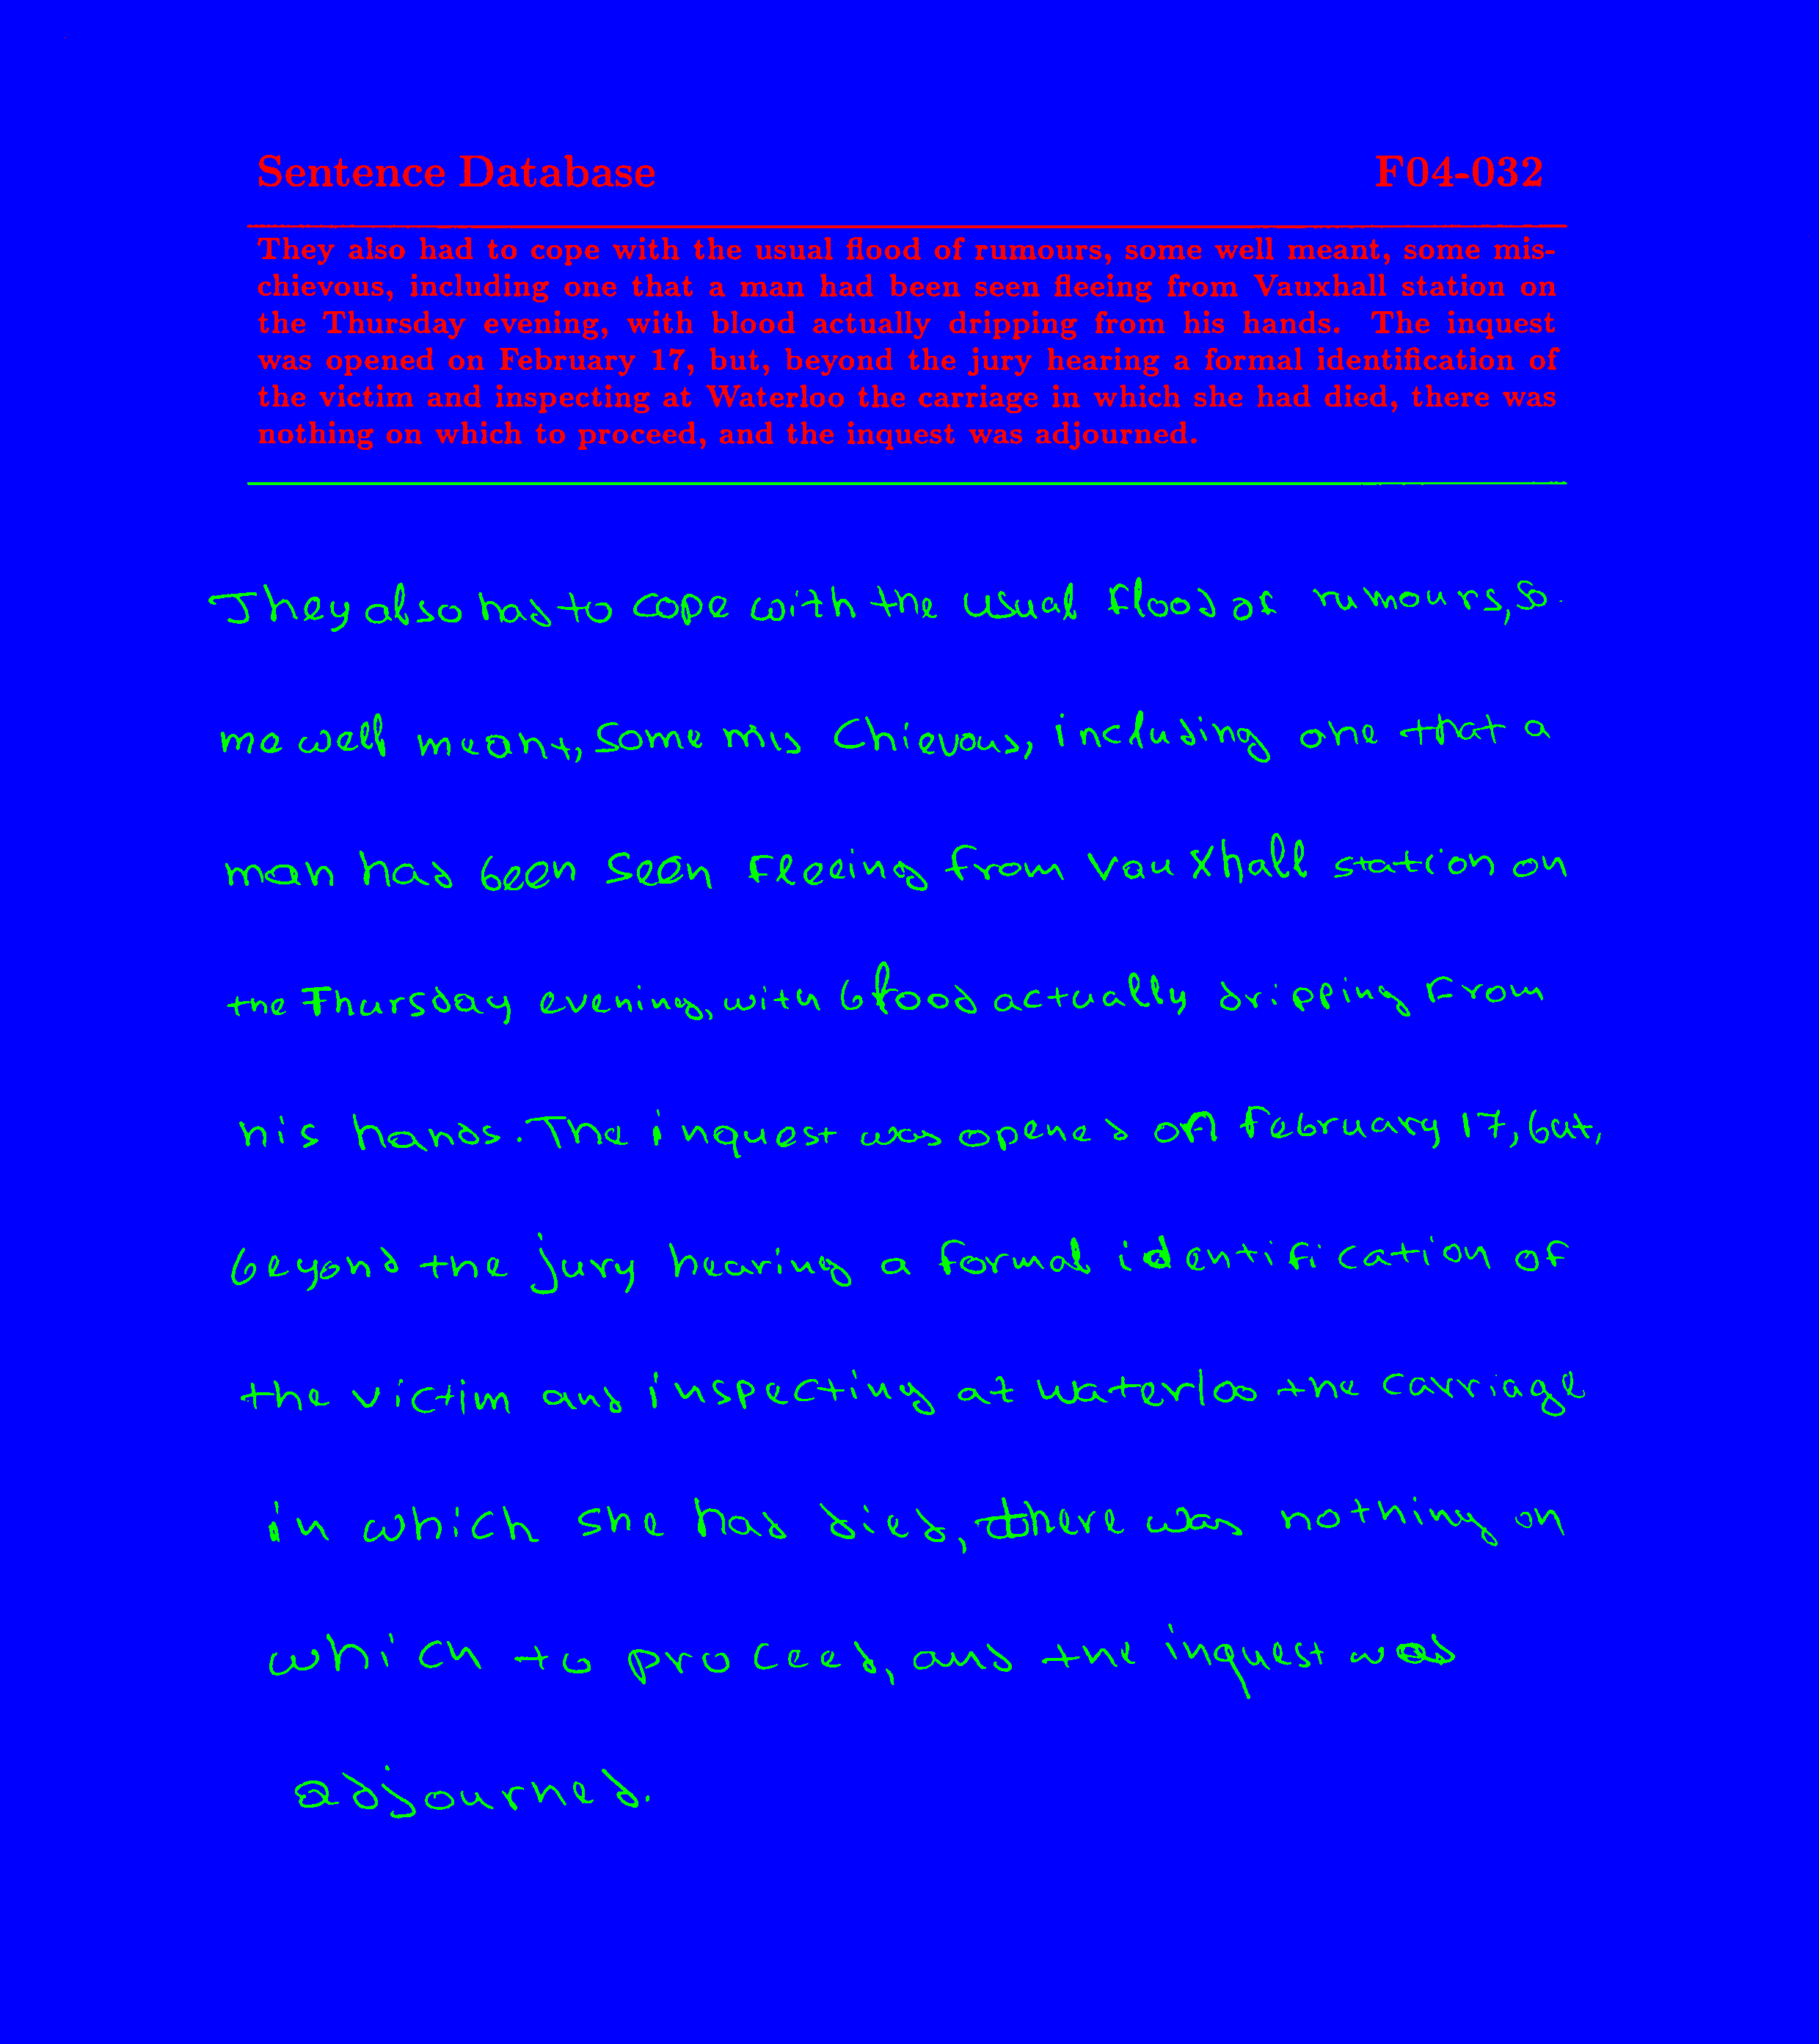 Sentence Database F04-032
They also had to cope with the usual flood of rumours, some well meant, some mis-
chievous, including one that a man had been seen fleeing from Vauxhall station on
the Thursday evening, with blood actually dripping from his hands. The inquest
was opened on February 17, but, beyond the jury hearing a formal identification of
the victim and inspecting at Waterloo the carriage in which she had died, there was
nothing on which to proceed, and the inquest was adjourned.
They also had to cope with the usual flood of rumours, so.
me well meant, some mis chievous, including one that a
man had been seen fleeing from Vauxhall station on
the Thursday evening, with blood actually dripping from
his hands. The inquest was opened on February 17, but,
beyond the jury hearing a formal identification of
the victim and inspecting at Waterloo the carriage
in which she had died, there was nothing on
which to proceed, and the inquest was
adjourned.